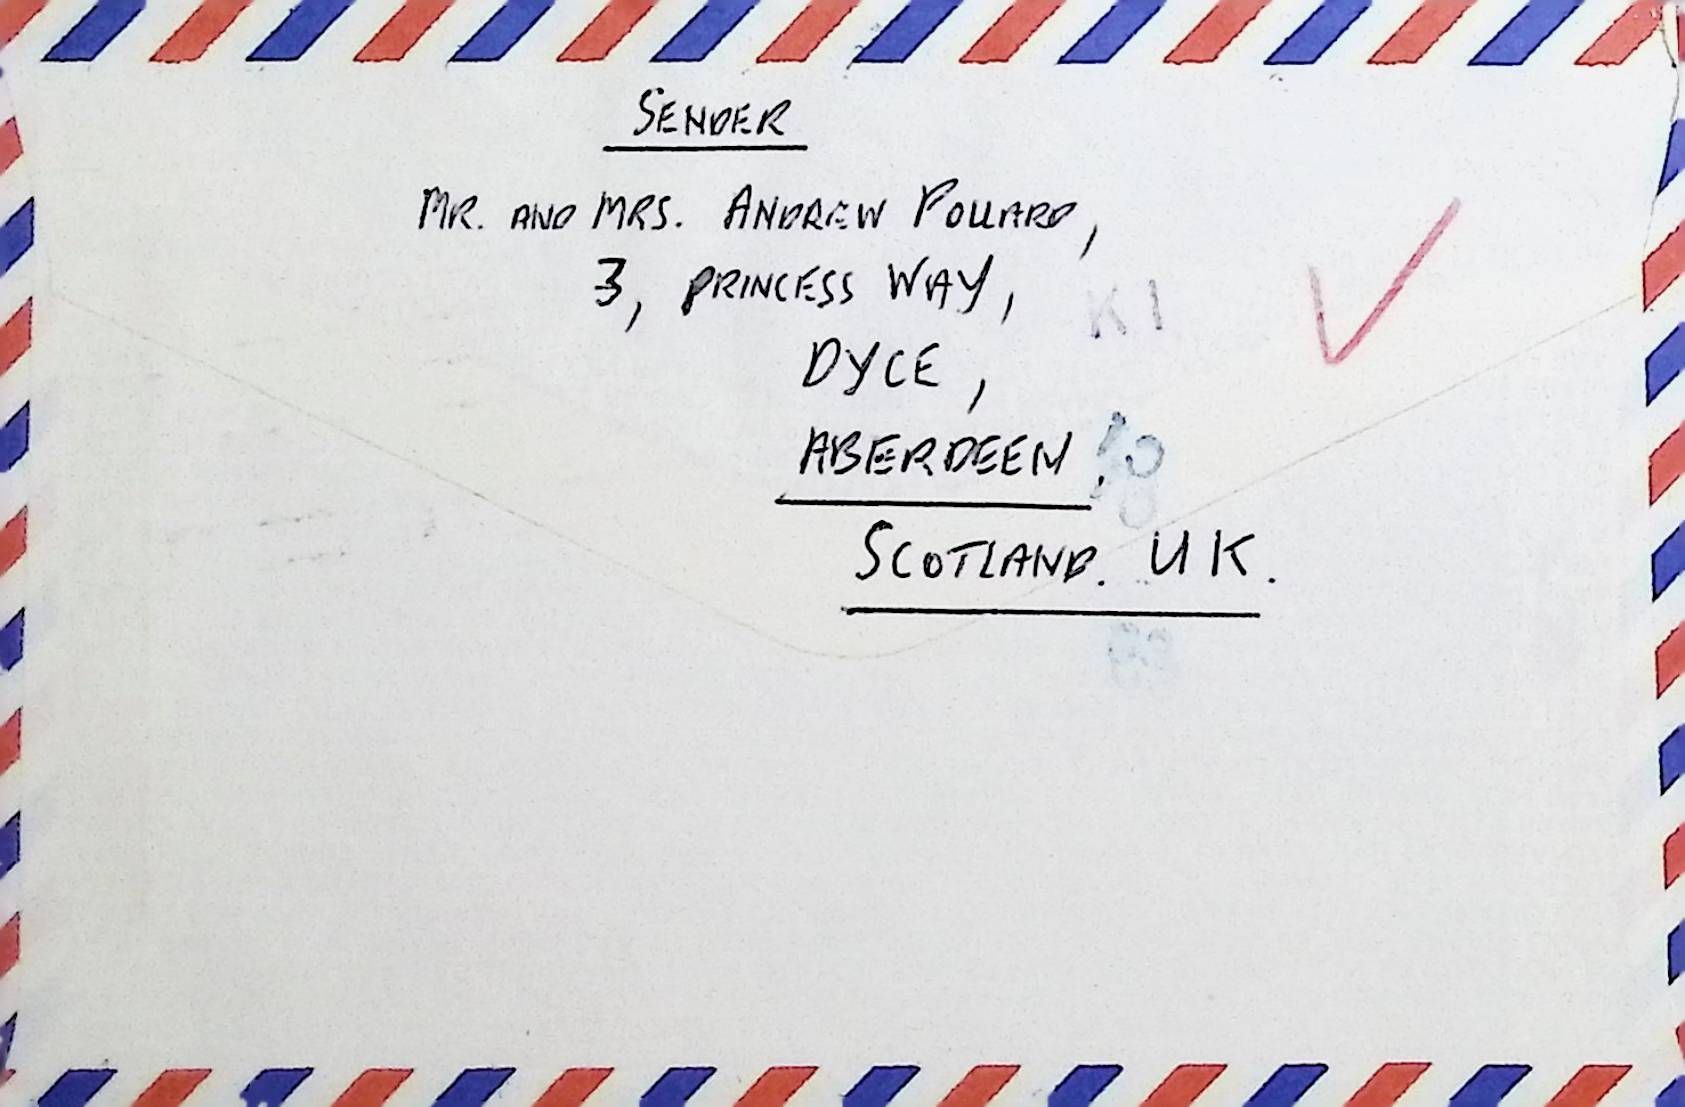 SENDER
MR. AND MRS. ANDREW POLLARD,
3, PRINCESS WAY,
KI
DYCE,
ABERDEEN.
SCOTLAND. UK.